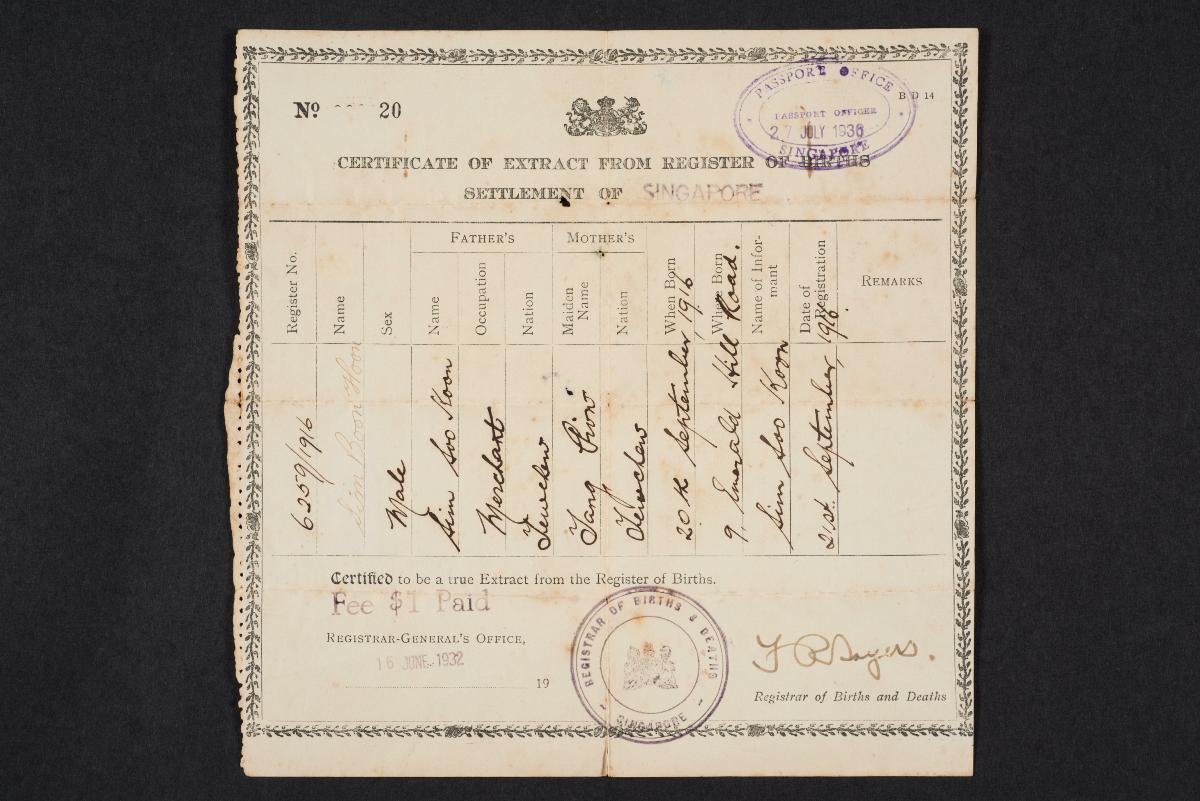 No 20
B D 14
PASSPORT OFFICE
PASSPORT OFFICER
27 JULY 1936
SINGAPORE
CERTIFICATE OF EXTRACT FROM REGISTER OF BIRTHS
SETTLEMENT OF SINGAPORE
Register No.
Name
Sex
FATHER'S
Name
Occupation
Nation
MOTHER'S
Maiden Name
Nation
When Born
Where Born
Name of Infor-
mant
Date of
Registration
REMARKS
6259/1916
Sim Boon Hoon
Male
Sim Soo Koon
Merchant
Teochew
Tang Chiow
Teochew
20th September, 1916
9, Emerald Hill Road.
Sim Soo Koon
21st. September, 1916
Certified to be a true Extract from the Register of Births.
Fee $1 Paid
REGISTRAR-GENERAL'S OFFICE,
16 JUNE 1932
19
REGISTRAR OF BIRTHS & DEATHS
SINGAPORE
Registrar of Births and Deaths